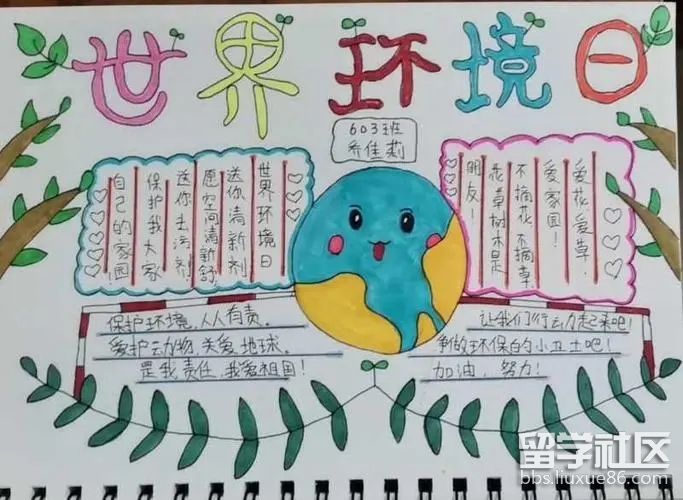 世界环境日
603班
乔佳莉
世界环境日
送你清新剂
愿空间清新舒
送你去污剂
保护我大家
自己的家园!
爱花爱草,
爱家园!
不摘花不摘草
花草树木是
朋友!
保护环境,人人有责。
爱护动物,关爱地球。
是我责任,我爱祖国!
让我们行动起来吧!
争做环保的小卫士吧!
加油,努力!
留学社区
bbs.liuxue86.com